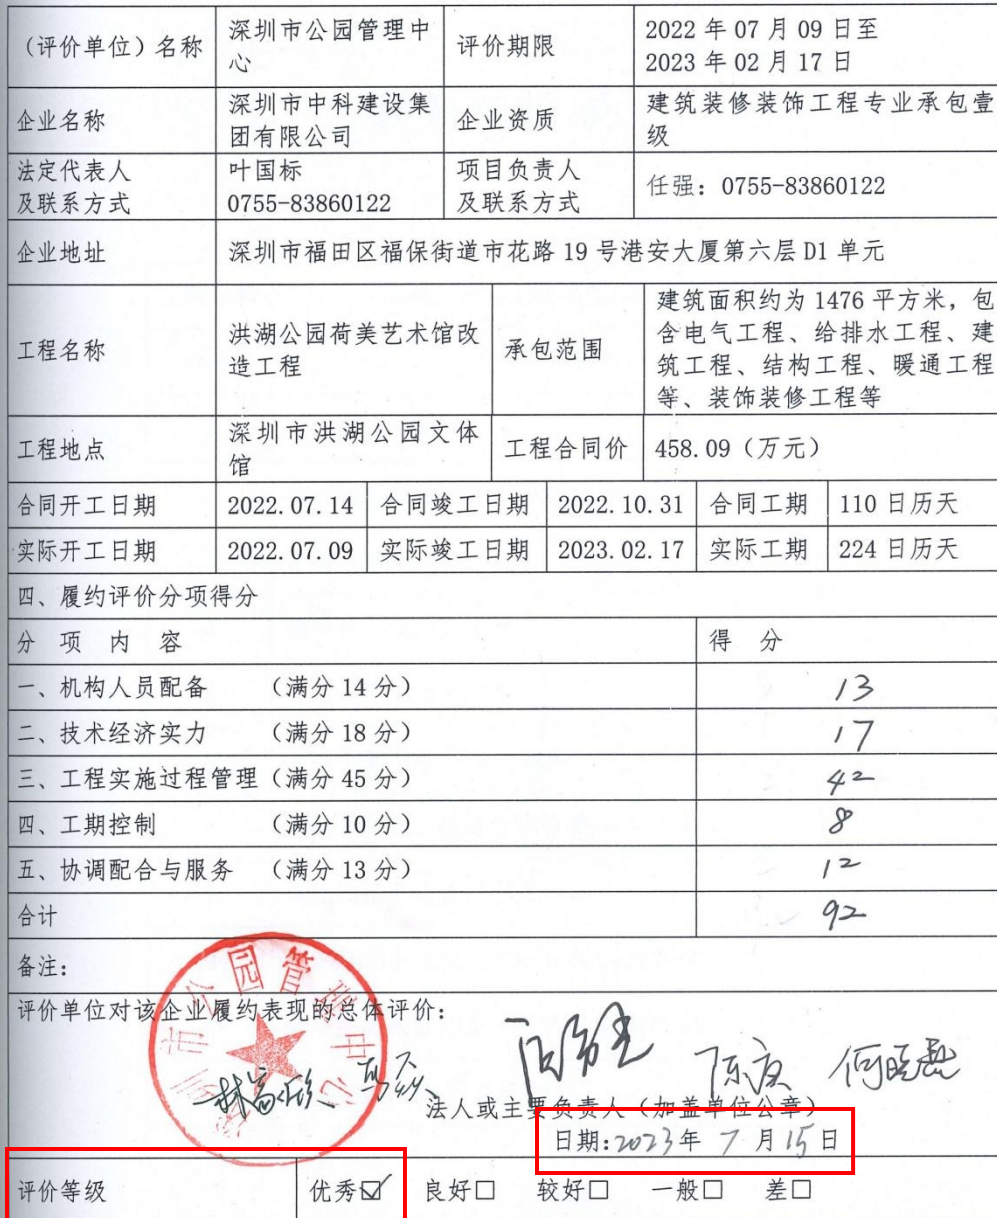 （评价单位）名称 深圳市公园管理中心 评价期限 2022 年 07 月 09 日至
2023 年 02 月 17 日
企业名称 深圳市中科建设集团有限公司 企业资质 建筑装修装饰工程专业承包壹级
法定代表人
及联系方式 叶国标
0755-83860122 项目负责人
及联系方式 任强：0755-83860122
企业地址 深圳市福田区福保街道市花路 19 号港安大厦第六层 D1 单元
工程名称 洪湖公园荷美艺术馆改造工程 承包范围 建筑面积约为 1476 平方米，包含电气工程、给排水工程、建筑工程、结构工程、暖通工程等、装饰装修工程等
工程地点 深圳市洪湖公园文体馆 工程合同价 458.09（万元）
合同开工日期 2022.07.14 合同竣工日期 2022.10.31 合同工期 110 日历天
实际开工日期 2022.07.09 实际竣工日期 2023.02.17 实际工期 224 日历天
四、履约评价分项得分
分 项 内 容 得 分
一、机构人员配备 （满分 14 分） 13
二、技术经济实力 （满分 18 分） 17
三、工程实施过程管理（满分 45 分） 42
四、工期控制 （满分 10 分） 8
五、协调配合与服务 （满分 13 分） 12
合计 92
备注：
评价单位对该企业履约表现的总体评价：
市公园管理中心
陈庚 何晓磊
法人或主要负责人（加盖单位公章）
日期:2023年 7 月 15 日
评价等级 优秀☑ 良好□ 较好□ 一般□ 差□